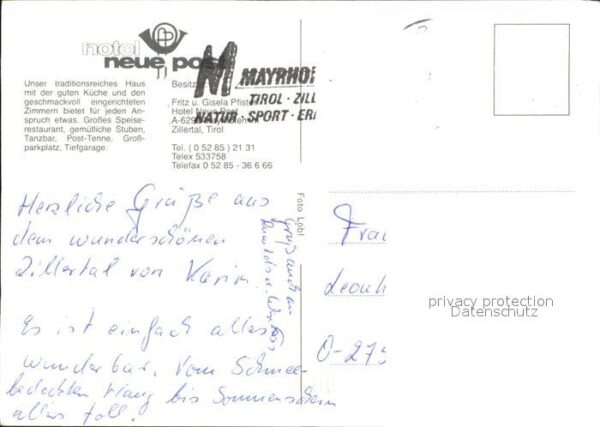 hotel
neue post
Unser traditionsreiches Haus
mit der guten Küche und den
geschmackvoll eingerichteten
Zimmern bietet für jeden An-
spruch etwas. Großes Speise-
restaurant, gemütliche Stuben,
Tanzbar, Post-Tenne, Groß-
parkplatz, Tiefgarage.
Besitzer
Fritz u. Gisela Pfister
Hotel Neue Post
A-629
Zillertal, Tirol
Tel. ( 0 52 85 ) 21 31
Telex 533758
Telefax 0 52 85 - 36 6 66
MAYRHOF
TIROL · ZILL
NATUR · SPORT · ERH
Herzliche Grüße aus
dem wunderschönen
Zillertal von Karin.
Es ist einfach alles
wunderbar. Vom Schnee-
bedeckten Hang bis Sonnenschein
alles toll!
Foto Löbl
Frau
Leonh
O-273
privacy protection
Datenschutz